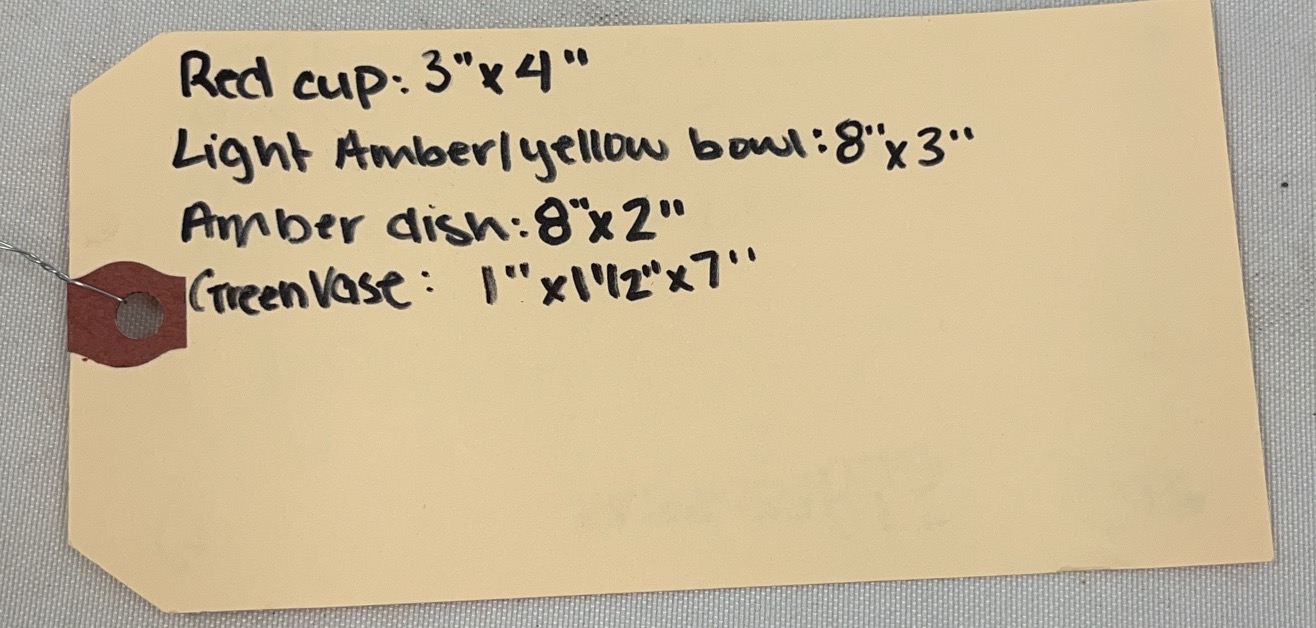 Red cup: 3"x4"
Light Amber/yellow bowl: 8"x3"
Amber dish: 8"x2"
Green Vase: 1"x1 1/2"x7"